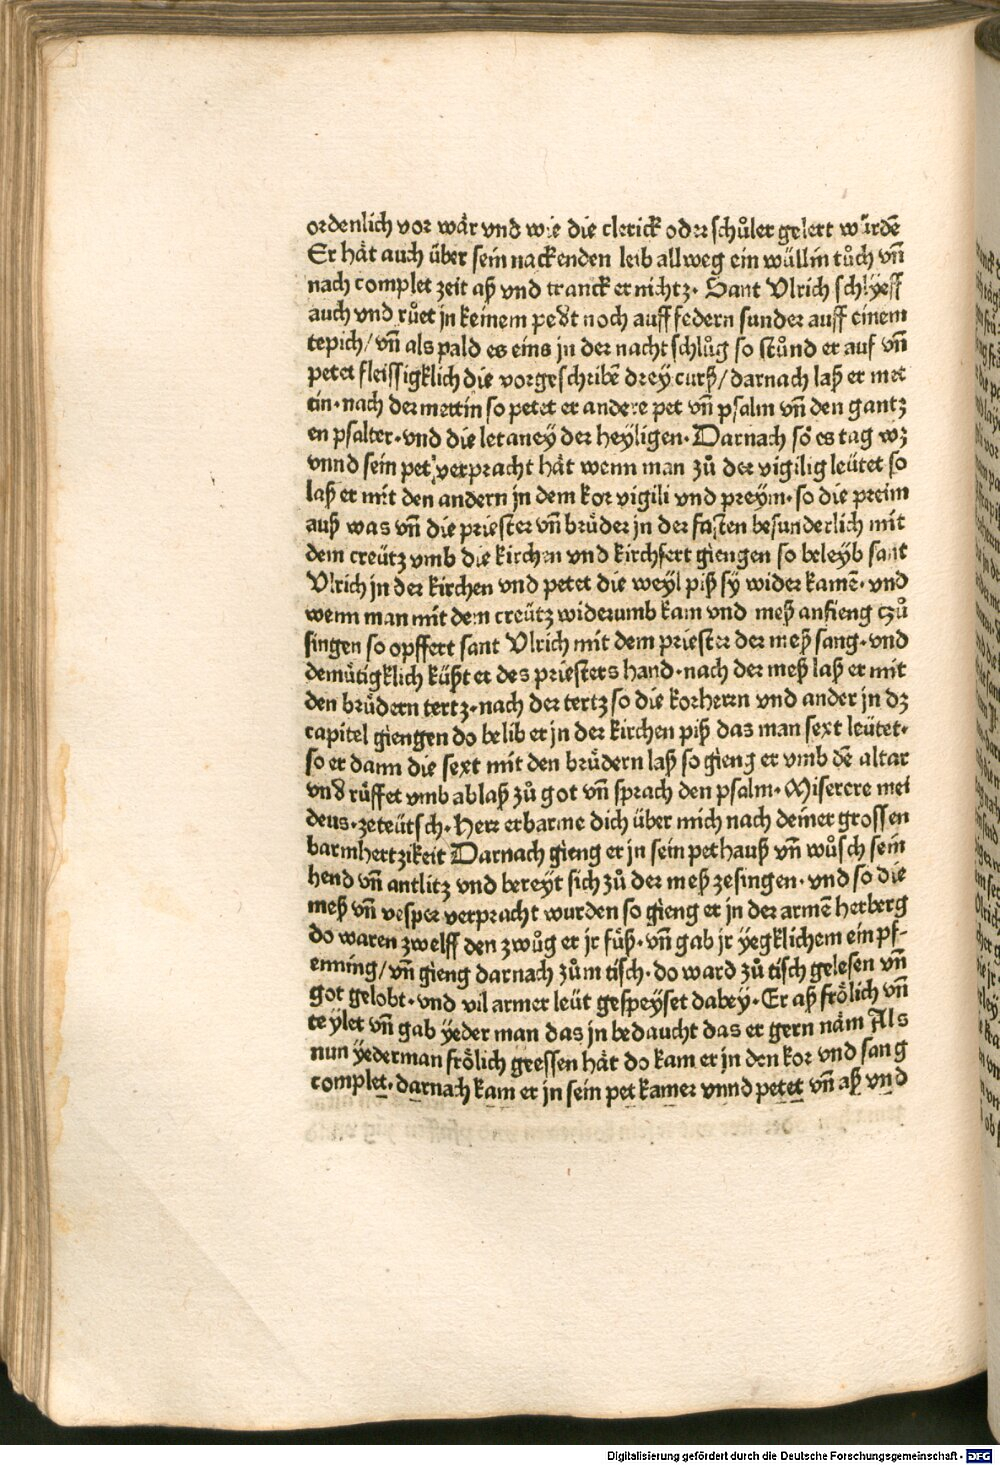 ordenlich vor wår vnd wie die clerick oder schůler gelert wůrdē
Er håt auch über sein nackenden leib allweg ein wüllin tůch vñ
nach complet zeit aß vnd tranck er nichtz· Sant Vlrich schlyeff
auch vnd růet jn keinem pedt noch auff federn sunder auff einem
tepich/ vñ als pald es eins jn der nacht schlůg so stůnd er auf vñ
petet fleissigklich die vorgeschribē drey curß/ darnach laß er met
tin· nach der mettin so petet er andere pet vñ psalm vñ den gantz
en psalter· vnd die letaney der heyligen· Darnach so es tag wz
vnnd sein pet verpracht håt wenn man zů der vigilig leütet so
laß er mit den andern jn dem kor vigili vnd preym· so die preim
auß was vñ die priester vñ brůder jn der fasten besunderlich mit
dem creütz vmb die kirchen vnd kirchfert giengen so beleyb sant
Vlrich jn der kirchen vnd petet die weyl piß sy wider kamē· vnd
wenn man mit dem creütz widerumb kam vnd meß anfieng czů
singen so opffert sant Vlrich mit dem priester der meß sang· vnd
demůtigklich küßt er des priesters hand· nach der meß laß er mit
den brůdern tertz· nach der tertz so die korherrn vnd ander jn dz
capitel giengen do belib er jn der kirchen piß das man sext leütet·
so er dann die sext mit den brůdern laß so gieng er vmb dē altar
vnd růffet vmb ablaß zů got vñ sprach den psalm· Miserere mei
deus· zeteütsch· Herr erbarme dich über mich nach deiner grossen
barmhertzikeit Darnach gieng er jn sein pethauß vñ wůsch sein
hend vñ antlitz vnd bereyt sich zů der meß zesingen· vnd so die
meß vñ vesper verpracht wurden so gieng er jn der armē herberg
do waren zwelff den zwůg er jr fůß· vñ gab jr yegklichem ein pf-
enning/ vñ gieng darnach zům tisch· do ward zů tisch gelesen vñ
got gelobt· vnd vil armer leüt gespeyset dabey· Er aß frőlich vñ
teylet vñ gab yeder man das jn bedaucht das er gern nåm Als
nun yederman frőlich geessen håt do kam er jn den kor vnd sang
complet· darnach kam er jn sein petkamer vnnd petet vñ aß vnd
Digitalisierung gefördert durch die Deutsche Forschungsgemeinschaft - DFG